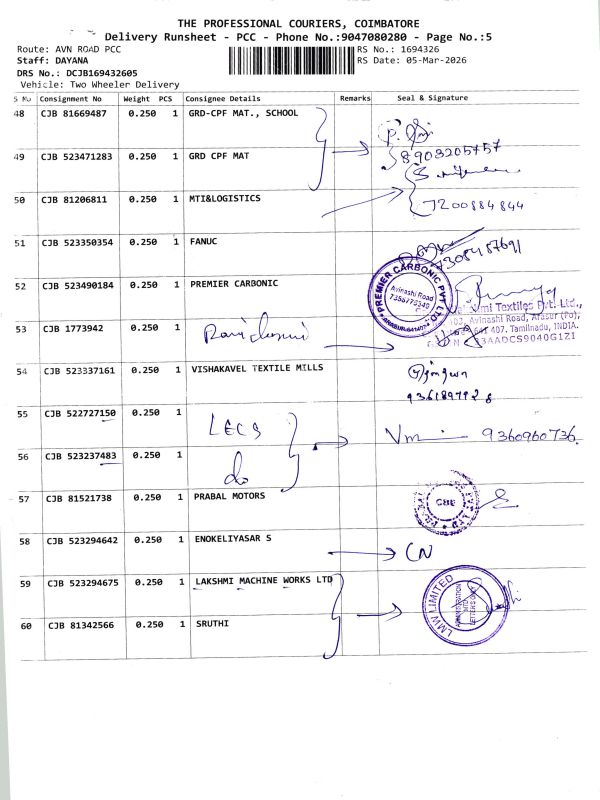 THE PROFESSIONAL COURIERS, COIMBATORE
Delivery Runsheet - PCC - Phone No.:9047080280 - Page No.:5
Route: AVN ROAD PCC
RS No.: 1694326
Staff: DAYANA
RS Date: 05-Mar-2026
DRS No.: DCJB169432605
Vehicle: Two Wheeler Delivery
S No Consignment No Weight PCS Consignee Details Remarks Seal & Signature
48 CJB 81669487 0.250 1 GRD-CPF MAT., SCHOOL
8903205757
49 CJB 523471283 0.250 1 GRD CPF MAT
50 CJB 81206811 0.250 1 MTI&LOGISTICS
7200884844
51 CJB 523350354 0.250 1 FANUC
7308487691
52 CJB 523490184 0.250 1 PREMIER CARBONIC
PREMIER CARBONIC PVT LTD
Avinashi Road
Textiles Pvt. Ltd.,
103, Avinashi Road, Arasur (Po),
641 407, Tamilnadu, INDIA.
33AADCS9040G1Z1
53 CJB 1773942 0.250 1
54 CJB 523337161 0.250 1 VISHAKAVEL TEXTILE MILLS
55 CJB 522727150 0.250 1 LECS
9360960736
56 CJB 523237483 0.250 1 do
57 CJB 81521738 0.250 1 PRABAL MOTORS
CBE
58 CJB 523294642 0.250 1 ENOKELIYASAR S
CN
59 CJB 523294675 0.250 1 LAKSHMI MACHINE WORKS LTD
LMW LIMITED
60 CJB 81342566 0.250 1 SRUTHI